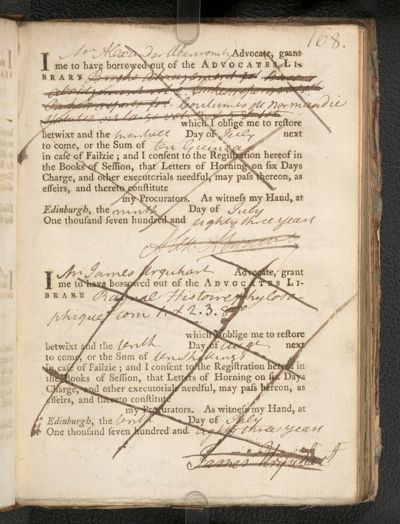 168.
I Mr Alexander Abercromby Advocate, grant
me to have borrowed out of the ADVOCATES LI-
BRARY
Coutumes de normandie
which I oblige me to reſtore
betwixt and the Day of July next
to come, or the Sum of Ten Guineas
in caſe of Failzie ; and I conſent to the Regiſtration hereof in
the Books of Seſſion, that Letters of Horning on ſix Days
Charge, and other executorials needful, may paſs thereon, as
effeirs, and thereto conſtitute
my Procurators. As witneſs my Hand, at
Edinburgh, the ninth Day of July
One thouſand ſeven hundred and eighty three years
I Mr James Urquhart Advocate, grant
me to have borrowed out of the ADVOCATES LI-
BRARY Raynal Histoire philoso
phique tom 1 2. 3.
which I oblige me to reſtore
betwixt and the tenth Day of next
to come, or the Sum of ten Shillings
in caſe of Failzie ; and I conſent to the Regiſtration hereof in
the Books of Seſſion, that Letters of Horning on ſix Days
Charge, and other executorials needful, may paſs thereon, as
effeirs, and thereto conſtitute
my Procurators. As witneſs my Hand, at
Edinburgh, the tenth Day of July
One thouſand ſeven hundred and eighty three years
James Urquhart